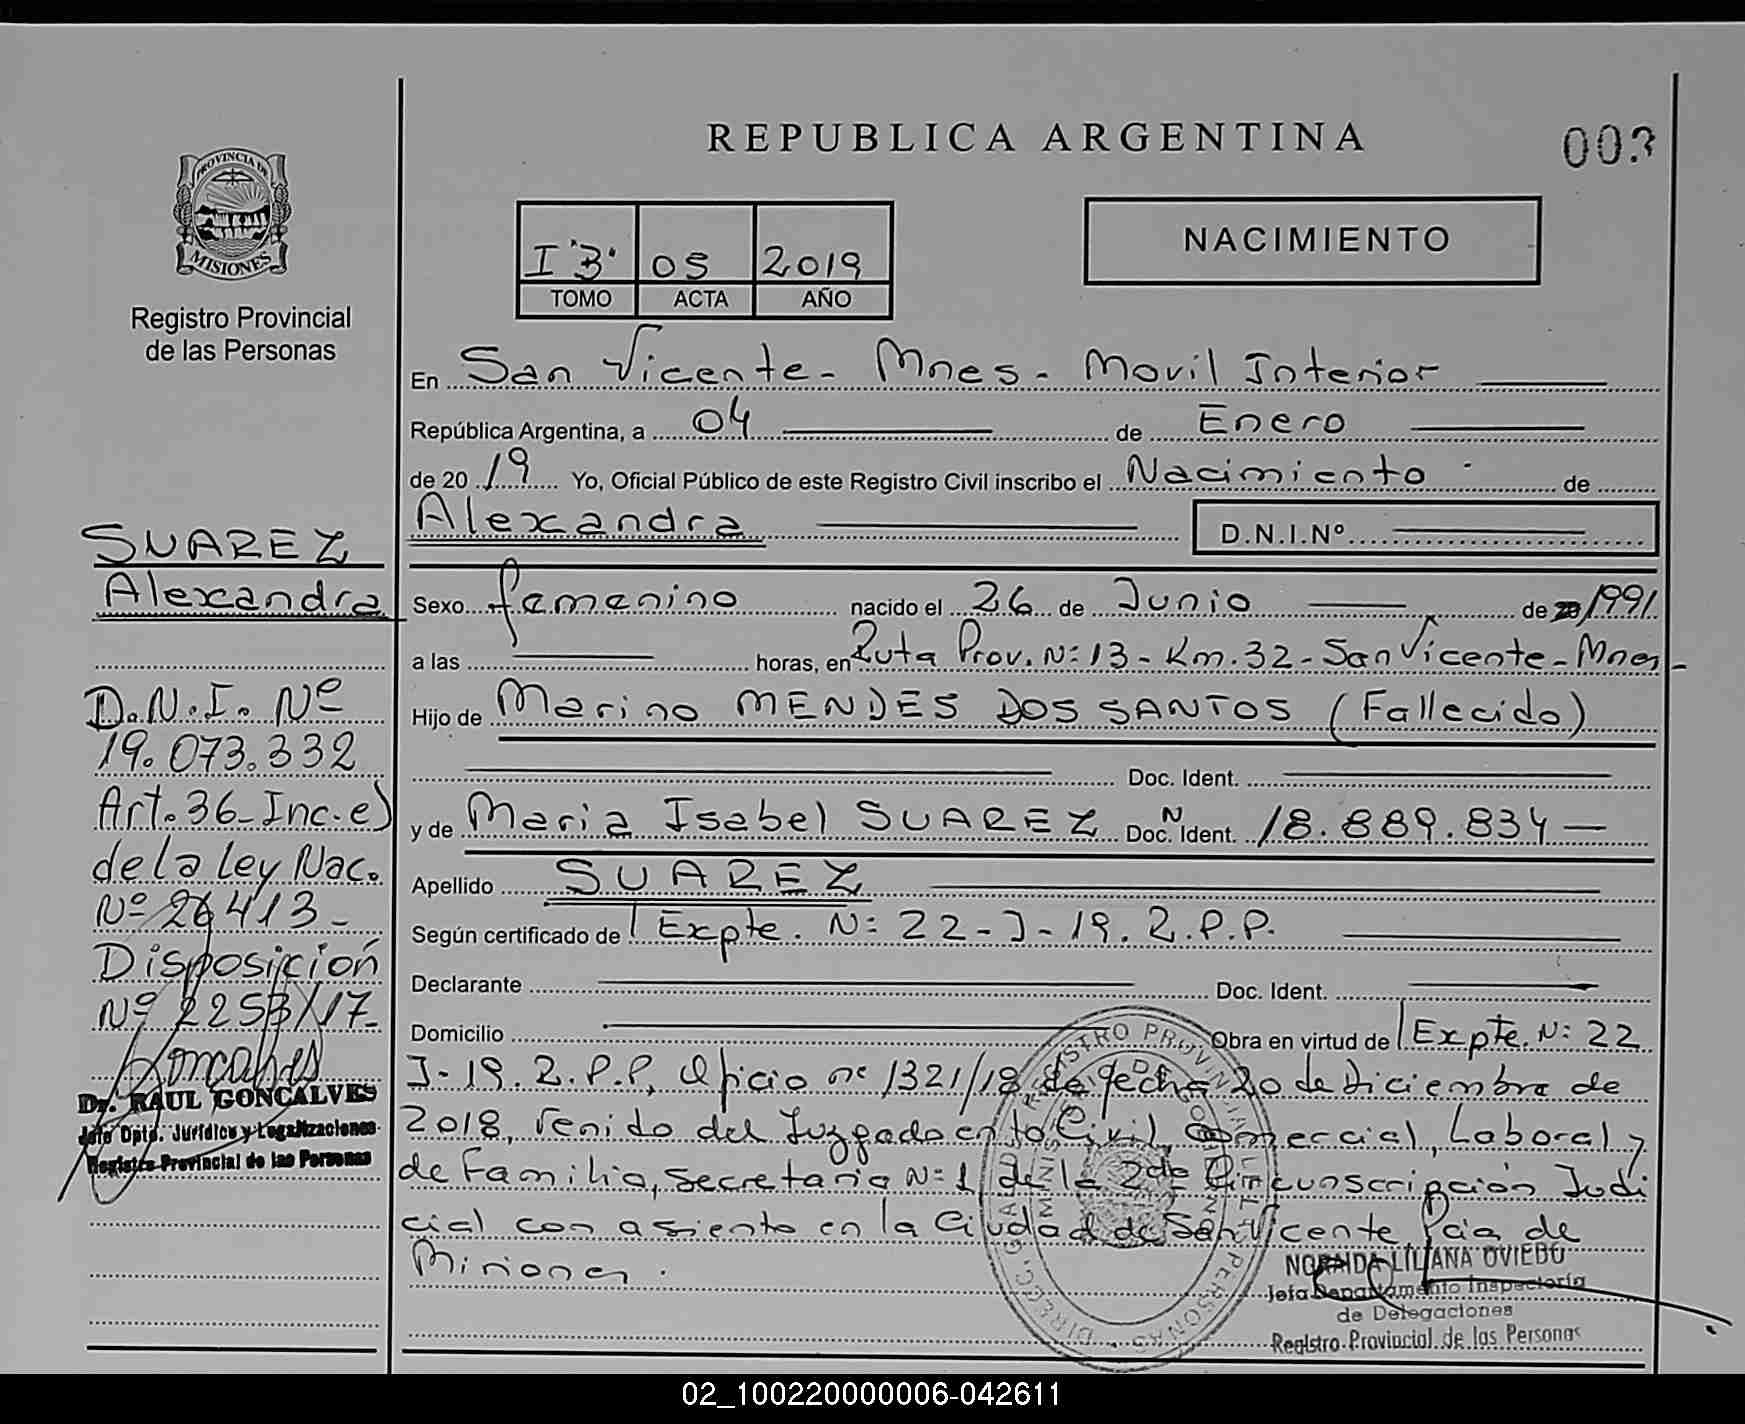 REPUBLICA ARGENTINA
003
PROVINCIA DE
MISIONES
Registro Provincial
de las Personas
I "B" 05 2019
TOMO ACTA AÑO
NACIMIENTO
En San Vicente - Mnes - Movil Interior
República Argentina, a 04 de Enero
de 2019 Yo, Oficial Público de este Registro Civil inscribo el Nacimiento de
Alexandra D.N.I.Nº
Sexo femenino nacido el 26 de Junio de 1991
a las horas, en Ruta Prov. Nº 13 - Km. 32 - San Vicente - Mnes -
Hijo de Marino MENDES DOS SANTOS (Fallecido)
Doc. Ident.
y de Maria Isabel SUAREZ Doc. N Ident. 18.889.834 —
Apellido SUAREZ
Según certificado de Expte. Nº 22-J-19.R.P.P.
Declarante Doc. Ident.
Domicilio Obra en virtud de Expte. Nº 22
J-19.R.P.P, Oficio nº 1321/18 de fecha 20 de Diciembre de
2018, venido del Juzgado en lo Civil, Comercial, Laboral y
de Familia, Secretaria Nº 1 de la 2da Circunscripción Judi
cial con asiento en la Ciudad de San Vicente Pcia de
Misiones.
SUAREZ
Alexandra
D.N.I. Nº
19.073.332
Art. 36 - Inc. e)
de la ley Nac.
Nº 26413 -
Disposición
Nº 2253/17 -
Goncalves
Dr. RAUL GONCALVES
Jefe Dpto. Jurídico y Legalizaciones
Registro Provincial de las Personas
DIRECC. GRAL. DE REGISTRO PROVINCIAL DE LAS PERSONAS
NORAIDA LILIANA OVIEDO
Jefa Departamento Inspectoría
de Delegaciones
Registro Provincial de las Personas
02_100220000006-042611